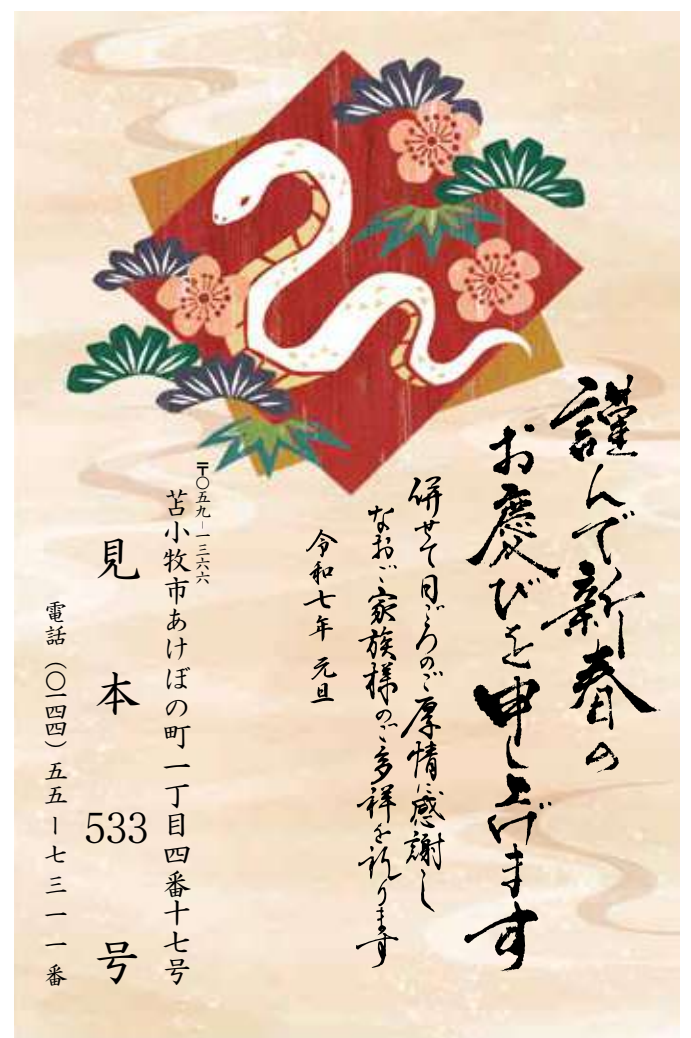 謹んで新春の
お慶びを申し上げます
併せて日ごろのご厚情に感謝し
なおご家族様のご多祥を祈ります
令和七年 元旦
〒〇五九−一三六六
苫小牧市あけぼの町一丁目四番十七号
見本533号
電話 (〇一四四) 五五−七三一一番